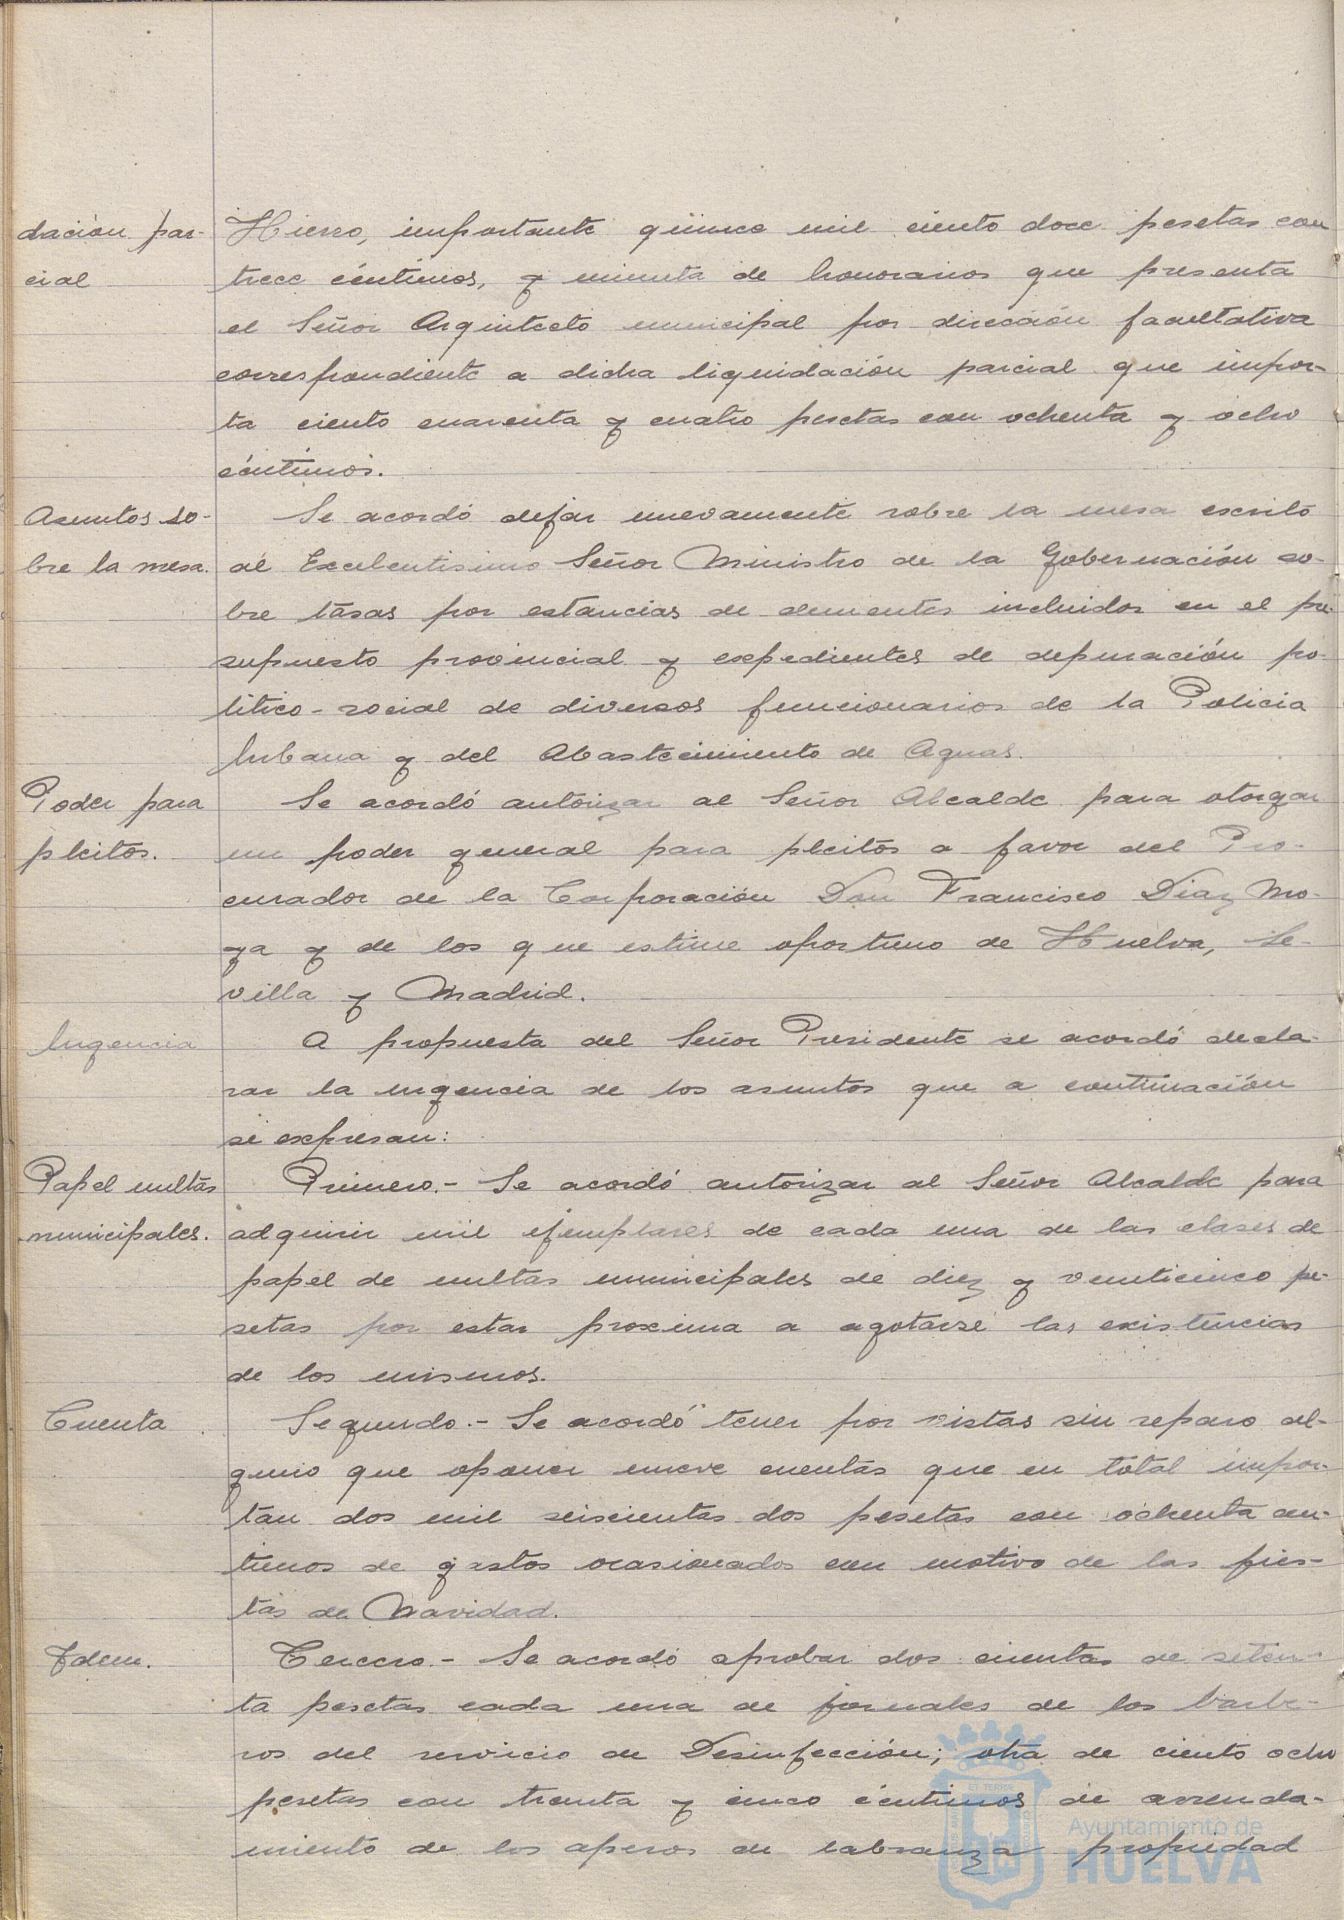 dación par-
cial
Hierro, importante quince mil ciento doce pesetas con
trece céntimos, y minuta de honorarios que presenta
el Señor Arquitecto municipal por dirección facultativa
correspondiente a dicha liquidación parcial que impor-
ta ciento cuarenta y cuatro pesetas con ochenta y ocho
céntimos.
Asuntos so-
bre la mesa.
Se acordó dejar nuevamente sobre la mesa escrito
al Excelentisimo Señor Ministro de la Gobernación so-
bre tasas por estancias de dementes incluidos en el pre-
supuesto provincial y expedientes de depuración po-
litico-social de diversos funcionarios de la Policia
Urbana y del Abastecimiento de Aguas.
Poder para
pleitos.
Se acordó autorizar al Señor Alcalde para otorgar
un poder general para pleitos a favor del Pro-
curador de la Corporación Don Francisco Diaz Mo-
ya y de los que estime oportuno de Huelva, Se-
villa y Madrid.
Urgencia
A propuesta del Señor Presidente se acordó decla-
rar la urgencia de los asuntos que a continuación
se expresan:
Papel multas
municipales.
Primero.- Se acordó autorizar al Señor Alcalde para
adquirir mil ejemplares de cada una de las clases de
papel de multas municipales de diez y veinticinco pe-
setas por estar proxima a agotarse las existencias
de los mismos.
Cuenta
Segundo.- Se acordó tener por vistas sin reparo al-
guno que oponer nueve cuentas que en total impor-
tan dos mil seiscientas dos pesetas con ochenta cen-
timos de gastos ocasionados con motivo de las fies-
tas de Navidad.
Idem.
Tercero.- Se acordó aprobar dos cuentas de seten-
ta pesetas cada una de jornales de los barbe-
ros del servicio de Desinfección; otra de ciento ocho
pesetas con treinta y cinco céntimos de arrenda-
miento de los aperos de labranza propiedad
Ayuntamiento de
HUELVA